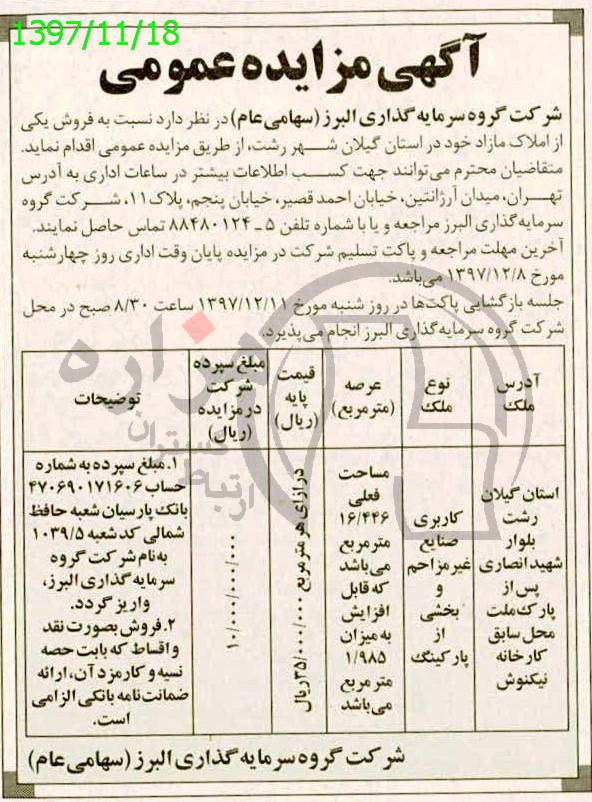 1397/11/18
آگهی مزایده عمومی
شرکت گروه سرمایه گذاری البرز (سهامی عام) در نظر دارد نسبت به فروش یکی
از املاک مازاد خود در استان گیلان شهر رشت، از طریق مزایده عمومی اقدام نماید.
متقاضیان محترم می‌توانند جهت کسب اطلاعات بیشتر در ساعات اداری به آدرس
تهران، میدان آرژانتین، خیابان احمد قصیر، خیابان پنجم، پلاک ۱۱، شرکت گروه
سرمایه گذاری البرز مراجعه و یا با شماره تلفن ۵ ـ ۸۸۴۸۰۱۲۴ تماس حاصل نمایند.
آخرین مهلت مراجعه و پاکت تسلیم شرکت در مزایده پایان وقت اداری روز چهارشنبه
مورخ ۱۳۹۷/۱۲/۸ می‌باشد.
جلسه بازگشایی پاکت‌ها در روز شنبه مورخ ۱۳۹۷/۱۲/۱۱ ساعت ۸/۳۰ صبح در محل
شرکت گروه سرمایه گذاری البرز انجام می‌پذیرد.
آدرس
ملک
نوع
ملک
عرصه
(مترمربع)
قیمت
پایه
(ریال)
مبلغ سپرده
شرکت
در مزایده
(ریال)
توضیحات
استان گیلان
رشت
بلوار
شهید انصاری
پس از
پارک ملت
محل سابق
کارخانه
نیکنوش
کاربری
صنایع
غیر مزاحم
و
بخشی
از
پارکینگ
مساحت
فعلی
۱۶/۴۴۶
مترمربع
می‌باشد
که قابل
افزایش
به میزان
۱/۹۸۵
متر مربع
می‌باشد
در ازای هر متر مربع ۳۵/۰۰۰/۰۰۰ ریال
۱۰/۰۰۰/۰۰۰/۰۰۰
۱. مبلغ سپرده به شماره
حساب ۴۷۰۶۹۰۱۷۱۶۰۶
بانک پارسیان شعبه حافظ
شمالی کد شعبه ۱۰۳۹/۵
به نام شرکت گروه
سرمایه گذاری البرز،
واریز گردد.
۲. فروش بصورت نقد
و اقساط که بابت حصه
نسیه و کارمزد آن، ارائه
ضمانت نامه بانکی الزامی
است.
شرکت گروه سرمایه گذاری البرز (سهامی عام)
هزاره
گستران
ارتباط